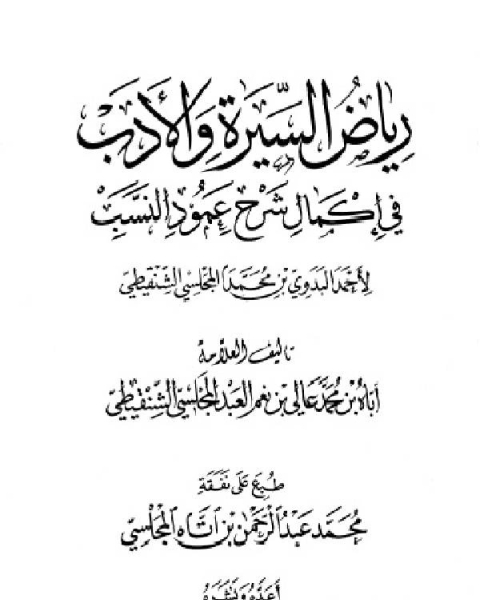 رياض السيرة والأدب
في إكمال شرح عمود النسب
لأحمد البدوي بن محمدا المجلسي الشنقيطي
تأليف العلامة
اباه بن محمد عالي بن نعم العبد المجلسي الشنقيطي
طبع على نفقة
محمد عبد الرحمن بن اتاه المجلسي
أعده ونشره